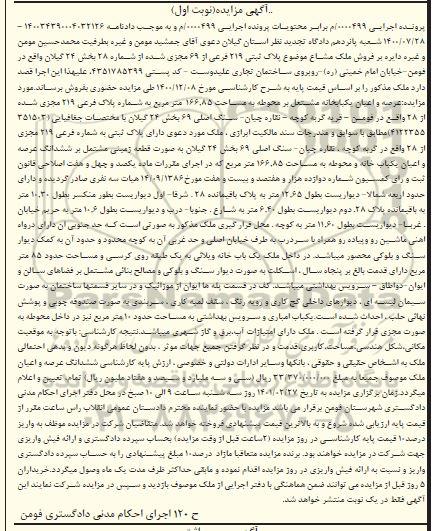 ..آگهی مزایده(نوبت اول)
پرونده اجرایی ۰۰۰۰۴۹۹/م برابر محتویات پرونده اجرایی ۰۰۰۰۴۹۹/م و به موجب دادنامه
۱۴۰۰/۰۷/۲۸ شعبه یازدهم دادگاه تجدید نظر استان گیلان دعوی آقای جمشید مومن و غیره بطرفیت محمدحسین مومن
و غیره دایره بر فروش ملک مشاع موضوع پلاک ثبتی ۲۱۹ فرعی از ۶۹ مجزی شده از شماره ۲۸ بخش ۲۴ گیلان واقع در
فومن-خیابان امام خمینی (ره)-روبروی ساختمان تجاری علیدوست - کد پستی ۴۳۵۱۷۸۵۳۹۹ علیهذا این اجرا قصد
دارد ملک مذکور را بر اساس قیمت پایه به شرح کارشناسی مورخ ۱۴۰۰/۱۲/۰۸ طی مزایده حضوری بفروش برساند.مورد
مزایده:عرصه و اعیان یکبابخانه مشتمل بر محوطه به مساحت ۱۶۶,۸۵ متر مربع به شماره پلاک فرعی ۲۱۹ مجزی شده
از ۲۸ واقع در فومن - قریه گربه کوچه - نقاره چیان- سنگ اصلی ۶۹ بخش ۲۴ گیلان با مختصات جغرافیایی
۴۱۲۲۳۵۵)مطابق با سوابق و مندرجات سند مالکیت ابرازی ، ملک مورد دعوی دارای پلاک ثبتی به شماره فرعی ۲۱۹ مجزی
از ۲۸ واقع در گربه کوچه ، نقاره چیان- سنگ اصلی ۶۹ بخش ۲۴ گیلان به صورت قطعه زمینی مشتمل بر ششدانگ عرصه
و اعیان یکباب خانه و محوطه به مساحت ۱۶۶,۸۵ متر مربع که در اجرای مقررات ماده یکصد و چهل و هفت اصلاحی قانون
ثبت و رای کمسیون شماره دوازده هزار و هفتصد و بیست و هفت مورخ ۱۴/۰۹/۱۳۸۶ هیات سه نفری صادر گردیده و دارای
حدود اربعه شمالا- دیواریست بطول ۱۲,۶۵ متر به پلاک باقیمانده ۲۸ . شرقا- اول دیواریست بطور منکسر بطول ۱۰,۳۰ متر
به باقیمانده پلاک ۲۸. دوم دیواریست بطول ۶,۴۰ متر به شارع . جنوبا- درب و دیواریست بطول ۱۰,۶ متر به حریم خیابان
. غربا- دیواریست بطول ۱۱,۶۰ متر به کوچه . محل قرار گیری ملک مذکور به صورتی است که حد جنوبی آن دارای درواه
اهنی ماشین رو وپیاده رو همراه با سردرب به طرف خیابان اصلی و حد غربی آن به کوچه محدود و حدود آن به کمک دیوار
سنگ و بلوکی محصور میباشد. در داخل ملک یک باب خانه ویلائی به یک طبقه روی کرسی و مساحت حدود ۸۵ متر
مربع دارای قدمت بالغ بر پنجاه سال ، اسکلت به صورت دیوار سنگ و بلوکی و مصالح بنائی مشتمل بر فضاهای سالن و
ایوان-دواطاق - سرویس بهداشتی میباشد. کف در قسمت پله ها ایوان از موزائیک و در سایر قسمتها ساختمان به صورت
سیمان لیسه ای ، دیوارهای داخلی گچ کاری و رویه رنگ . سقف لمبه کاری . سربندی به صورت صندوقه چوبی و پوشش
نهائی حلبی، احداث شده است.یکباب انباری و سرویس بهداشتی به مساحت حدود ۱۰ متر مربع نیز در داخل محوطه به
صورت مجزی قرار گرفته است . ملک دارای امتیازات آب،برق و گاز شهری میباشد.نتیجه کارشناسی: باتوجه به موقعیت
مکانی،شکل هندسی،مساحت،کاربری،قدمت و در نظر گرفتن جمیع جهات موثر . بدون لحاظ هرگونه دیون وبدهی احتمالی
ملک به اشخاص حقیقی و حقوقی ، بانکها وسایر ادارات دولتی و خصوصی ، ارزش پایه کارشناسی ششدانگ عرصه و اعیان
ملک موصوف جمعا به مبلغ ریال (سی و سه ملیارد و سیصد و هفتاد ملیون ریال) تمام تعیین و اعلام
میگردد.زمان برگزاری مزایده به تاریخ ۱۴۰۱/۰۲/۲۷ روز سه شنبه ساعت ۹ الی ۱۰ صبح در محل دفتر اجرای احکام مدنی
دادگستری شهرستان فومن برقرار می باشد مزایده با حضور نماینده محترم دادستان عمومی انقلاب راس ساعت مقرر از
قیمت پایه ارزیابی شده شروع و به بالاترین قیمت پیشنهادی فروخته خواهد شد. متقاضیان شرکت در مزایده موظف به واریز
۱۰درصد قیمت پایه کارشناسی در روز مزایده (۲ساعت قبل از وقت مزایده) بحساب سپرده دادگستری و ارائه فیش واریزی
جهت شرکت در مزایده خواهند بود. برنده مزایده متعاقبا مازاد ۱۰درصد مبلغ پیشنهادی را به حساب سپرده دادگستری
واریز و نسبت به ارائه فیش واریزی در روز مزایده اقدام نموده و مابقی حداکثر ظرف مدت یک ماه وصول میگردد.خریداران
۵ روز قبل از مزایده می توانند ضمن هماهنگی با دفتر اجرایی از ملک موصوف بازدید و سپس در مزایده شرکت نمایند این
آگهی فقط در یک نوبت منتشر خواهد شد.
ح ۱۲۰ اجرای احکام مدنی دادگستری فومن